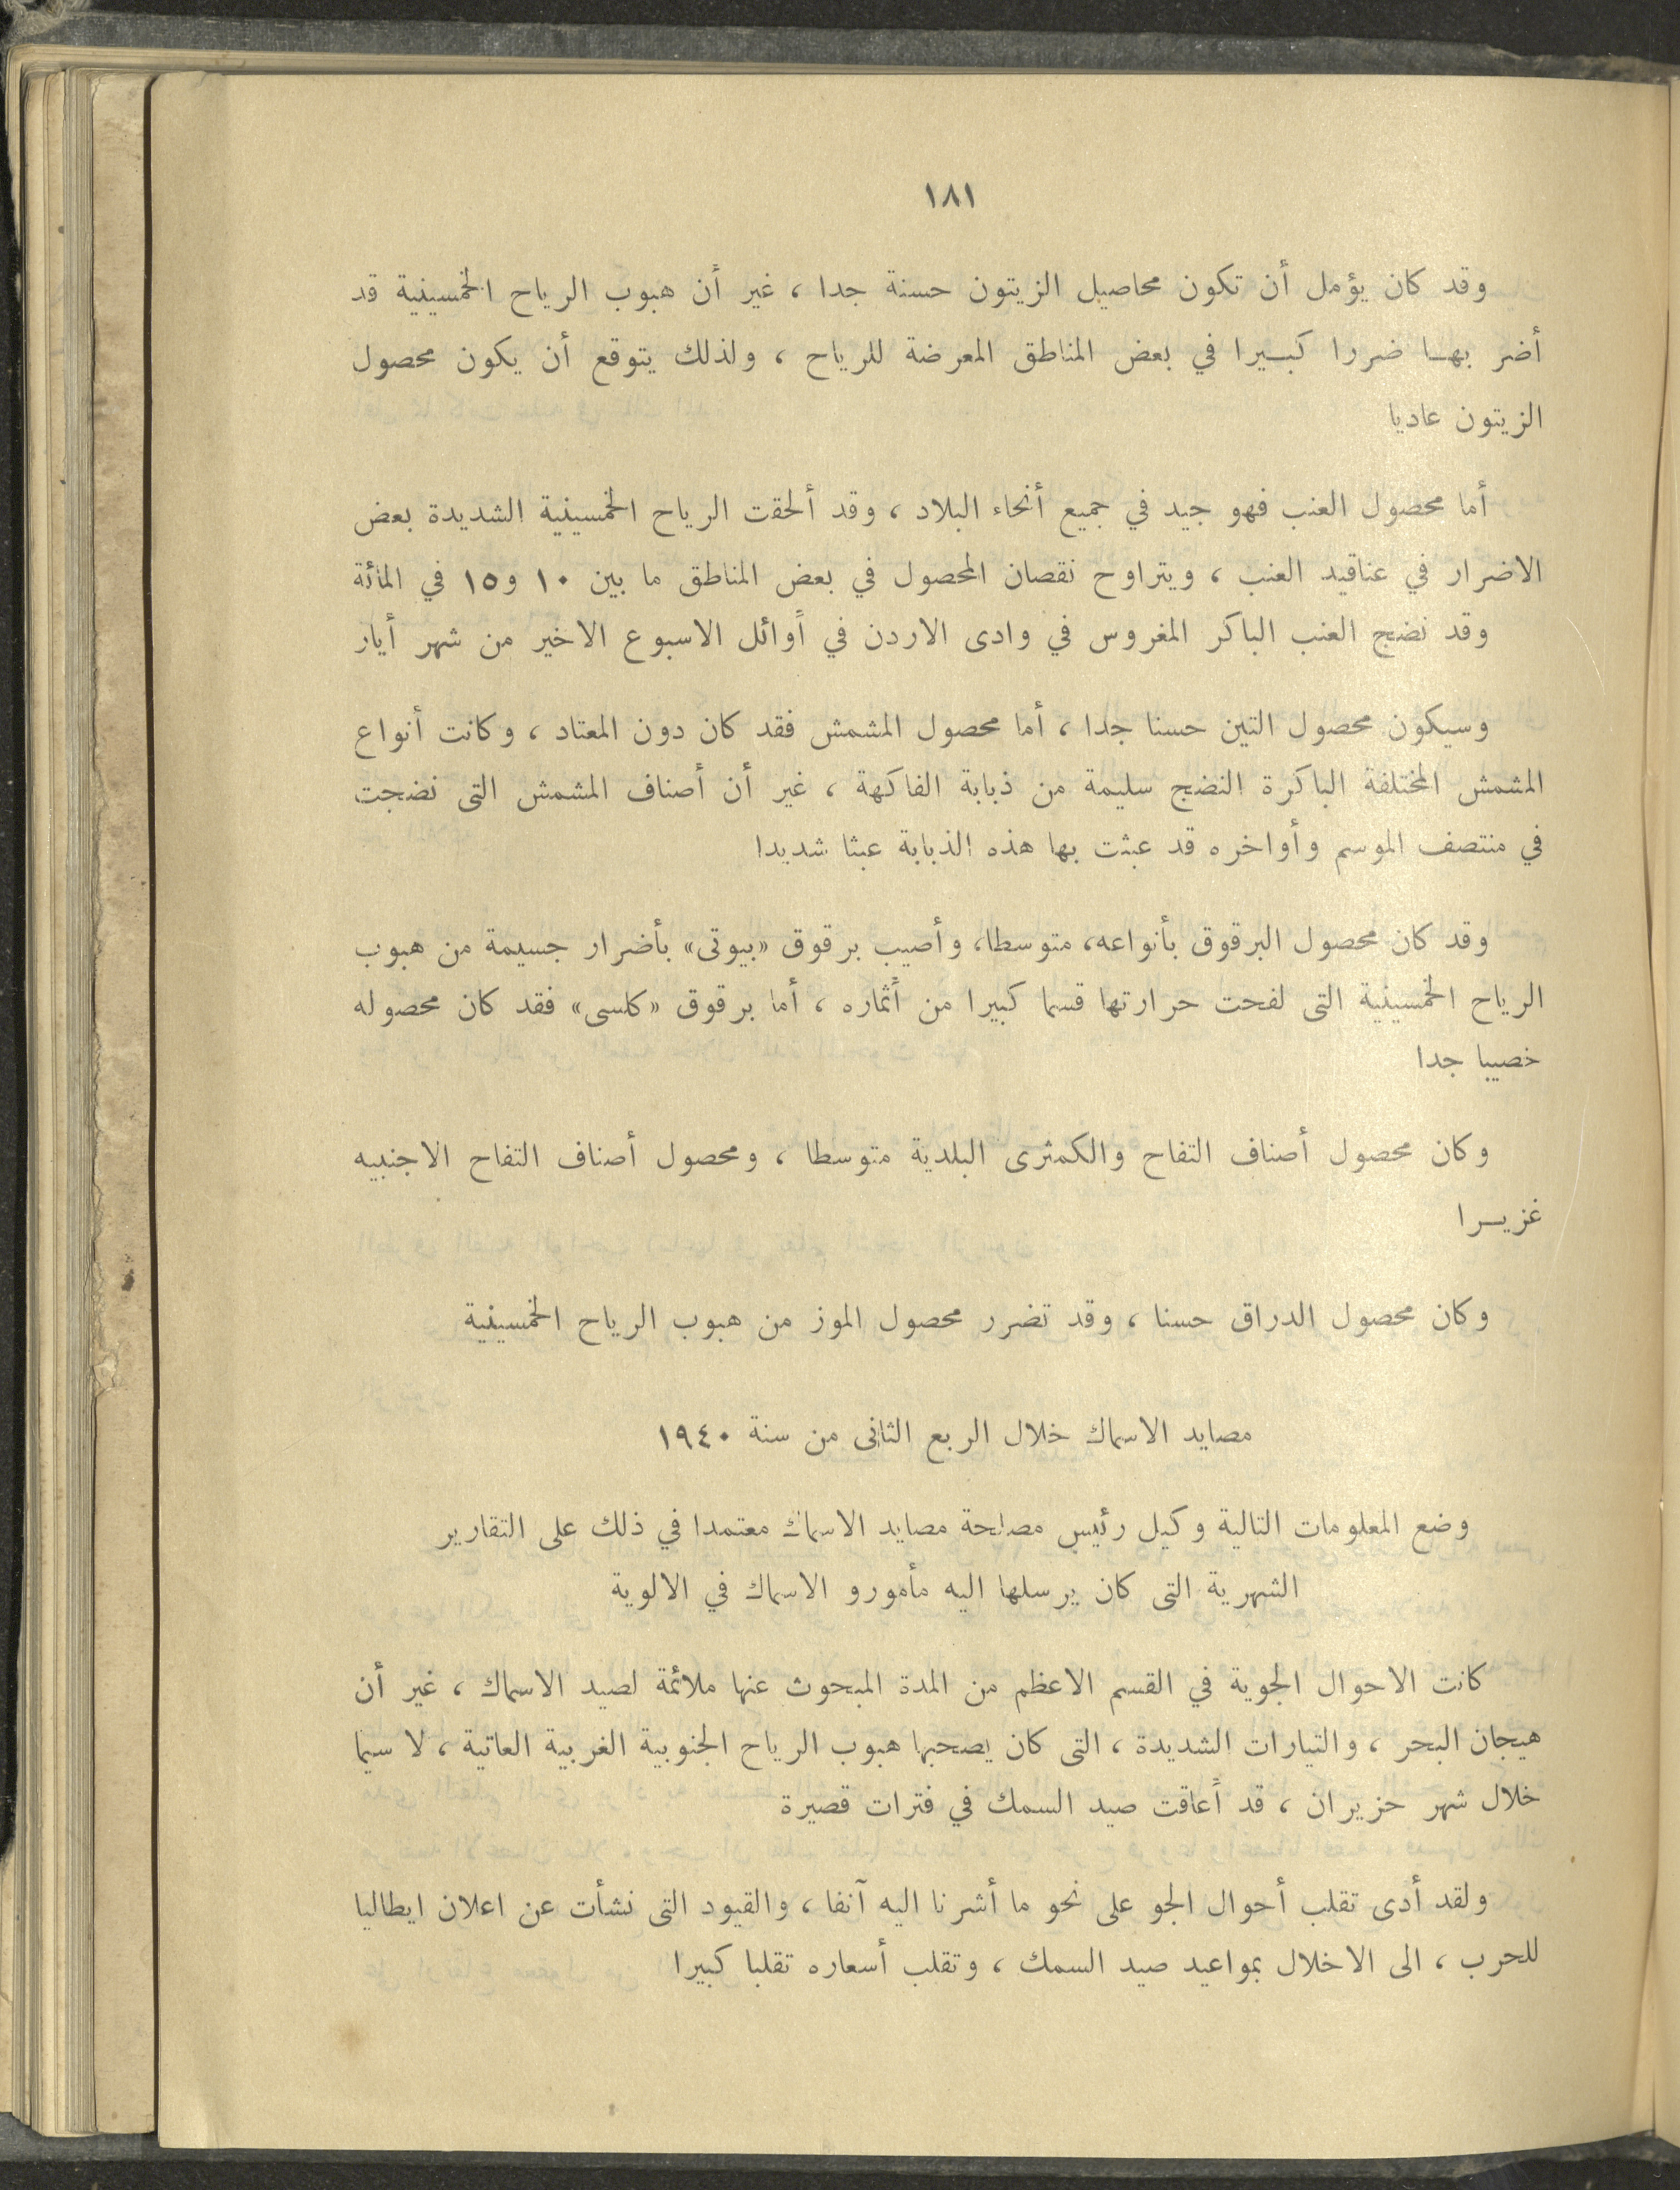 ١٨١
وقد كان يؤمل أن تكون محاصيل الزيتون حسنة جدا ، غير أن هبوب الرياح الخمسينية قد
أضر بهـا ضررا كبـيرا في بعض المناطق المعرضة للرياح ، ولذلك يتوقع أن يكون محصول
الزيتون عاديا
أما محصول العنب فهو جيد في جميع أنحاء البلاد ، وقد ألحقت الرياح الخمسينية الشديدة بعض
الاضرار في عناقيد العنب ، ويتراوح نقصان المحصول في بعض المناطق ما بين ١٠ و١٥ في المائة
وقد نضج العنب الباكر المغروس في وادى الاردن في أوائل الاسبوع الاخير من شهر أيار
وسيكون محصول التين حسنا جدا ، أما محصول المشمش فقد كان دون المعتاد ، وكانت أنواع
المشمش المختلفة الباكرة النضج سليمة من ذبابة الفاكهة ، غير أن أصناف المشمش التى نضجت
في منتصف الموسم وأواخره قد عبثت بها هذه الذبابة عبثا شديدا
وقد كان محصول البرقوق بأنواعه، متوسطا، وأصيب برقوق «بيوتى» بأضرار جسيمة من هبوب
الرياح الخمسينية التى لفحت حرارتها قسما كبيرا من أثماره ، أما برقوق «كلسى» فقد كان محصوله
خصيبا جدا
وكان محصول أصناف التفاح والكمثرى البلدية متوسطا ، ومحصول أصناف التفاح الاجنبيه
غزيـرا
وكان محصول الدراق حسنا ، وقد تضرر محصول الموز من هبوب الرياح الخمسينية
مصايد الاسماك خلال الربع الثانى من سنة ١٩٤٠
وضع المعلومات التالية وكيل رئيس مصلحة مصايد الاسماك معتمدا في ذلك على التقارير
الشهرية التى كان يرسلها اليه مأمورو الاسماك في الالوية
كانت الاحوال الجوية في القسم الاعظم من المدة المبحوث عنها ملائمة لصيد الاسماك ، غير أن
هيجان البحر ، والتيارات الشديدة ، التى كان يصحبها هبوب الرياح الجنوبية الغربية العاتية ، لا سيما
خلال شهر حزيران ، قد أعاقت صيد السمك في فترات قصيرة
ولقد أدى تقلب أحوال الجو على نحو ما أشرنا اليه آنفا ، والقيود التى نشأت عن اعلان ايطاليا
للحرب ، الى الاخلال بمواعيد صيد السمك ، وتقلب أسعاره تقلبا كبيرا